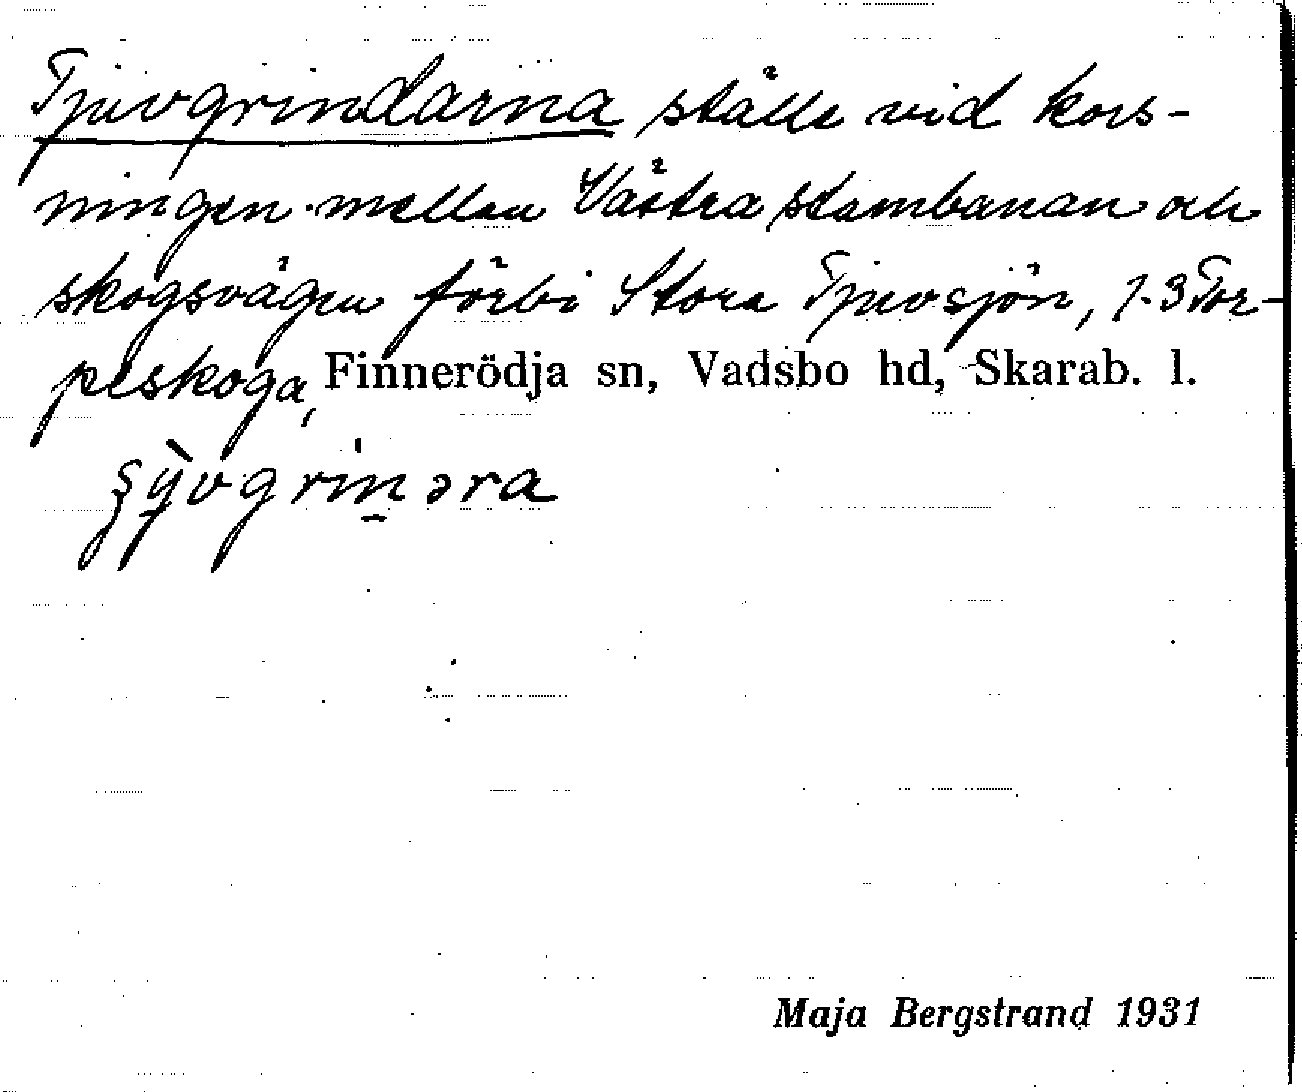 Tjuvgrindarna ställe vid kors-
ningen mellan Västra stambanan och
skogsvägen förbi Stora Tjuvsjön, 1-3 Tor-
peskoga, Finnerödja sn, Vadsbo hd, Skarab. l.
Maja Bergstrand 1931